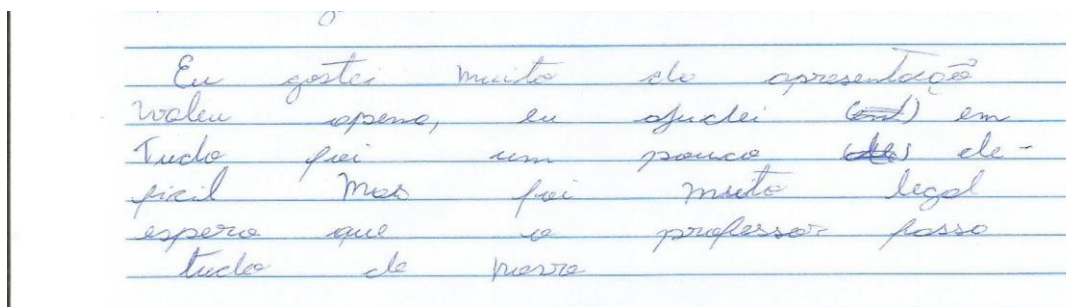 Eu gostei muito da apresentação
valeu apena, eu ajudei (em) em
Tudo foi um pouco de-
ficil mas foi muito legal
espero que o professor fassa
tudo de novo